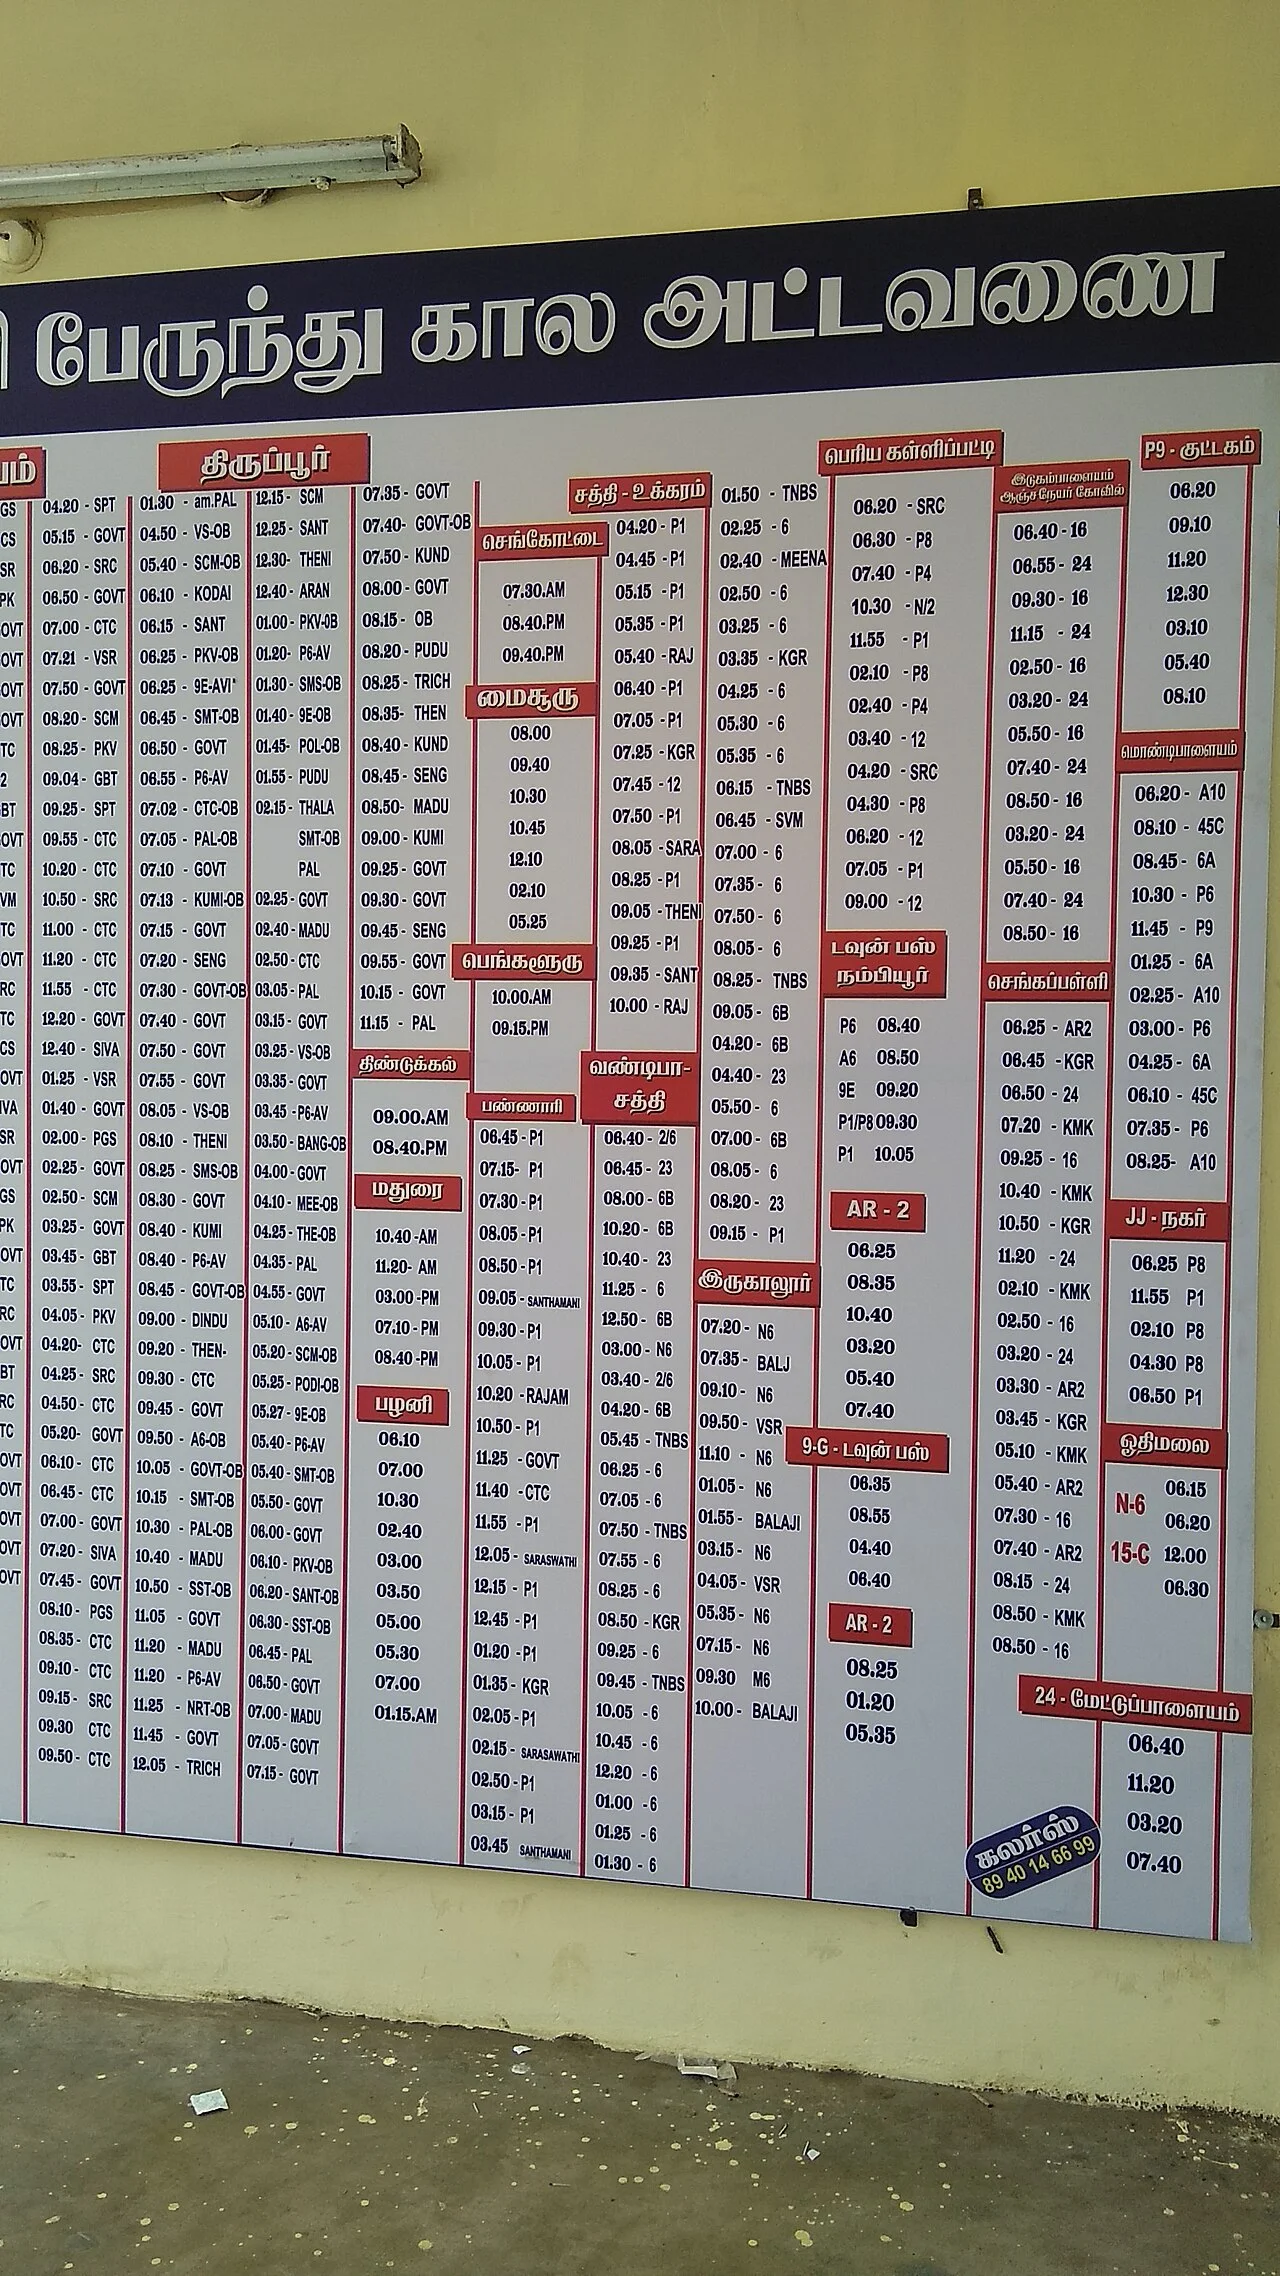 பேருந்து கால அட்டவணை
திருப்பூர்
04.20 - SPT
05.15 - GOVT
06.20 - SRC
06.50 - GOVT
07.00 - CTC
07.21 - VSR
07.50 - GOVT
08.20 - SCM
08.25 - PKV
09.04 - GBT
09.25 - SPT
09.55 - CTC
10.20 - CTC
10.50 - SRC
11.00 - CTC
11.20 - CTC
11.55 - CTC
12.20 - GOVT
12.40 - SIVA
01.25 - VSR
01.40 - GOVT
02.00 - PGS
02.25 - GOVT
02.50 - SCM
03.25 - GOVT
03.45 - GBT
03.55 - SPT
04.05 - PKV
04.20 - CTC
04.25 - SRC
04.50 - CTC
05.20 - GOVT
06.10 - CTC
06.45 - CTC
07.00 - GOVT
07.20 - SIVA
07.45 - GOVT
08.10 - PGS
08.35 - CTC
09.10 - CTC
09.15 - SRC
09.30 CTC
09.50 - CTC
01.30 - am.PAL
04.50 - VS-OB
05.40 - SCM-OB
06.10 - KODAI
06.15 - SANT
06.25 - PKV-OB
06.25 - 9E-AVI*
06.45 - SMT-OB
06.50 - GOVT
06.55 - P6-AV
07.02 - CTC-OB
07.05 - PAL-OB
07.10 - GOVT
07.13 - KUMI-OB
07.15 - GOVT
07.20 - SENG
07.30 - GOVT-OB
07.40 - GOVT
07.50 - GOVT
07.55 - GOVT
08.05 - VS-OB
08.10 - THENI
08.25 - SMS-OB
08.30 - GOVT
08.40 - KUMI
08.40 - P6-AV
08.45 - GOVT-OB
09.00 - DINDU
09.20 - THEN-
09.30 - CTC
09.45 - GOVT
09.50 - A6-OB
10.05 - GOVT-OB
10.15 - SMT-OB
10.30 - PAL-OB
10.40 - MADU
10.50 - SST-OB
11.05 - GOVT
11.20 - MADU
11.20 - P6-AV
11.25 - NRT-OB
11.45 - GOVT
12.05 - TRICH
12.15 - SCM
12.25 - SANT
12.30 - THENI
12.40 - ARAN
01.00 - PKV-OB
01.20 - P6-AV
01.30 - SMS-OB
01.40 - 9E-OB
01.45 - POL-OB
01.55 - PUDU
02.15 - THALA
SMT-OB
PAL
02.25 - GOVT
02.40 - MADU
02.50 - CTC
03.05 - PAL
03.15 - GOVT
03.25 - VS-OB
03.35 - GOVT
03.45 - P6-AV
03.50 - BANG-OB
04.00 - GOVT
04.10 - MEE-OB
04.25 - THE-OB
04.35 - PAL
04.55 - GOVT
05.10 - A6-AV
05.20 - SCM-OB
05.25 - PODI-OB
05.27 - 9E-OB
05.40 - P6-AV
05.40 - SMT-OB
05.50 - GOVT
06.00 - GOVT
06.10 - PKV-OB
06.20 - SANT-OB
06.30 - SST-OB
06.45 - PAL
06.50 - GOVT
07.00 - MADU
07.05 - GOVT
07.15 - GOVT
07.35 - GOVT
07.40 - GOVT-OB
07.50 - KUND
08.00 - GOVT
08.15 - OB
08.20 - PUDU
08.25 - TRICH
08.35 - THEN
08.40 - KUND
08.45 - SENG
08.50 - MADU
09.00 - KUMI
09.25 - GOVT
09.30 - GOVT
09.45 - SENG
09.55 - GOVT
10.15 - GOVT
11.15 - PAL
திண்டுக்கல்
09.00.AM
08.40.PM
மதுரை
10.40 -AM
11.20- AM
03.00 -PM
07.10 -PM
08.40 -PM
பழனி
06.10
07.00
10.30
02.40
03.00
03.50
05.00
05.30
07.00
01.15.AM
செங்கோட்டை
07.30.AM
08.40.PM
09.40.PM
மைசூரு
08.00
09.40
10.30
10.45
12.10
02.10
05.25
பெங்களூரு
10.00.AM
09.15.PM
பண்ணாரி
06.45 - P1
07.15- P1
07.30 - P1
08.05 - P1
08.50 - P1
09.05 - SANTHAMANI
09.30 - P1
10.05 - P1
10.20 - RAJAM
10.50 - P1
11.25 - GOVT
11.40 - CTC
11.55 - P1
12.05 - SARASWATHI
12.15 - P1
12.45 - P1
01.20 - P1
01.35 - KGR
02.05 - P1
02.15 - SARASAWATHI
02.50 - P1
03.15 - P1
03.45 SANTHAMANI
சத்தி - உக்கரம்
04.20 - P1
04.45 - P1
05.15 - P1
05.35 - P1
05.40 - RAJ
06.40 - P1
07.05 - P1
07.25 - KGR
07.45 - 12
07.50 - P1
08.05 - SARA
08.25 - P1
09.05 - THENI
09.25 - P1
09.35 - SANT
10.00 - RAJ
வண்டிபா-
சத்தி
06.40 - 2/6
06.45 - 23
08.00 - 6B
10.20 - 6B
10.40 - 23
11.25 - 6
12.50 - 6B
03.00 - N6
03.40 - 2/6
04.20 - 6B
05.45 - TNBS
06.25 - 6
07.05 - 6
07.50 - TNBS
07.55 - 6
08.25 - 6
08.50 - KGR
09.25 - 6
09.45 - TNBS
10.05 - 6
10.45 - 6
12.20 - 6
01.00 - 6
01.25 - 6
01.30 - 6
01.50 - TNBS
02.25 - 6
02.40 - MEENA
02.50 - 6
03.25 - 6
03.35 - KGR
04.25 - 6
05.30 - 6
05.35 - 6
06.15 - TNBS
06.45 - SVM
07.00 - 6
07.35 - 6
07.50 - 6
08.05 - 6
08.25 - TNBS
09.05 - 6B
04.20 - 6B
04.40 - 23
05.50 - 6
07.00 - 6B
08.05 - 6
08.20 - 23
09.15 - P1
இருகாலூர்
07.20 - N6
07.35 - BALJ
09.10 - N6
09.50 - VSR
11.10 - N6
01.05 - N6
01.55 - BALAJI
03.15 - N6
04.05 - VSR
05.35 - N6
07.15 - N6
09.30 M6
10.00 - BALAJI
பெரிய கள்ளிப்பட்டி
06.20 - SRC
06.30 - P8
07.40 - P4
10.30 - N/2
11.55 - P1
02.10 - P8
02.40 - P4
03.40 - 12
04.20 - SRC
04.30 - P8
06.20 - 12
07.05 - P1
09.00 - 12
டவுன் பஸ்
நம்பியூர்
P6 08.40
A6 08.50
9E 09.20
P1/P8 09.30
P1 10.05
AR - 2
06.25
08.35
10.40
03.20
05.40
07.40
9-G - டவுன் பஸ்
06.35
08.55
04.40
06.40
AR - 2
08.25
01.20
05.35
இடுகம்பாளையம்
ஆஞ்சநேயர் கோவில்
06.40 - 16
06.55 - 24
09.30 - 16
11.15 - 24
02.50 - 16
03.20 - 24
05.50 - 16
07.40 - 24
08.50 - 16
03.20 - 24
05.50 - 16
07.40 - 24
08.50 - 16
செங்கப்பள்ளி
06.25 - AR2
06.45 - KGR
06.50 - 24
07.20 - KMK
09.25 - 16
10.40 - KMK
10.50 - KGR
11.20 - 24
02.10 - KMK
02.50 - 16
03.20 - 24
03.30 - AR2
03.45 - KGR
05.10 - KMK
05.40 - AR2
07.30 - 16
07.40 - AR2
08.15 - 24
08.50 - KMK
08.50 - 16
P9 - குட்டகம்
06.20
09.10
11.20
12.30
03.10
05.40
08.10
மொண்டிபாளையம்
06.20 - A10
08.10 - 45C
08.45 - 6A
10.30 - P6
11.45 - P9
01.25 - 6A
02.25 - A10
03.00 - P6
04.25 - 6A
06.10 - 45C
07.35 - P6
08.25- A10
JJ - நகர்
06.25 P8
11.55 P1
02.10 P8
04.30 P8
06.50 P1
ஓதிமலை
06.15
N-6 06.20
15-C 12.00
06.30
24 - மேட்டுப்பாளையம்
06.40
11.20
03.20
07.40
கலர்ஸ்
89 40 14 66 99